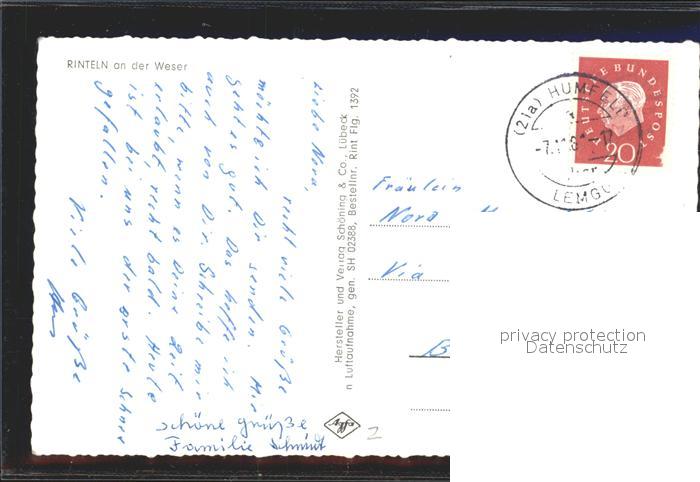 RINTELN an der Weser
Liebe Nora,
recht viele Grüße
möchte ich Dir senden. Mir
geht es gut. Das hoffe ich
auch von Dir. Schreibe mir
bitte, wenn es Deine Zeit
erlaubt, recht bald. Heute
ist bei uns der erste Schnee
gefallen.
Viele Grüße
schöne grüße
Familie Schmidt
Hersteller und Verlag Schöning & Co., Lübeck
n Luftaufnahme, gen. SH 02388, Bestellnr. Rint Flg. 1392
Fräulein
Nora
Via
B
DEUTSCHE BUNDESPOST
20
(21a) HUMFELD
LEMGO
privacy protection
Datenschutz